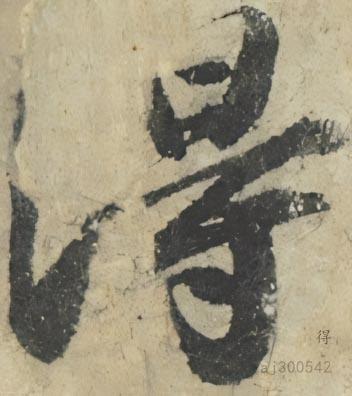 得
得
aj300542